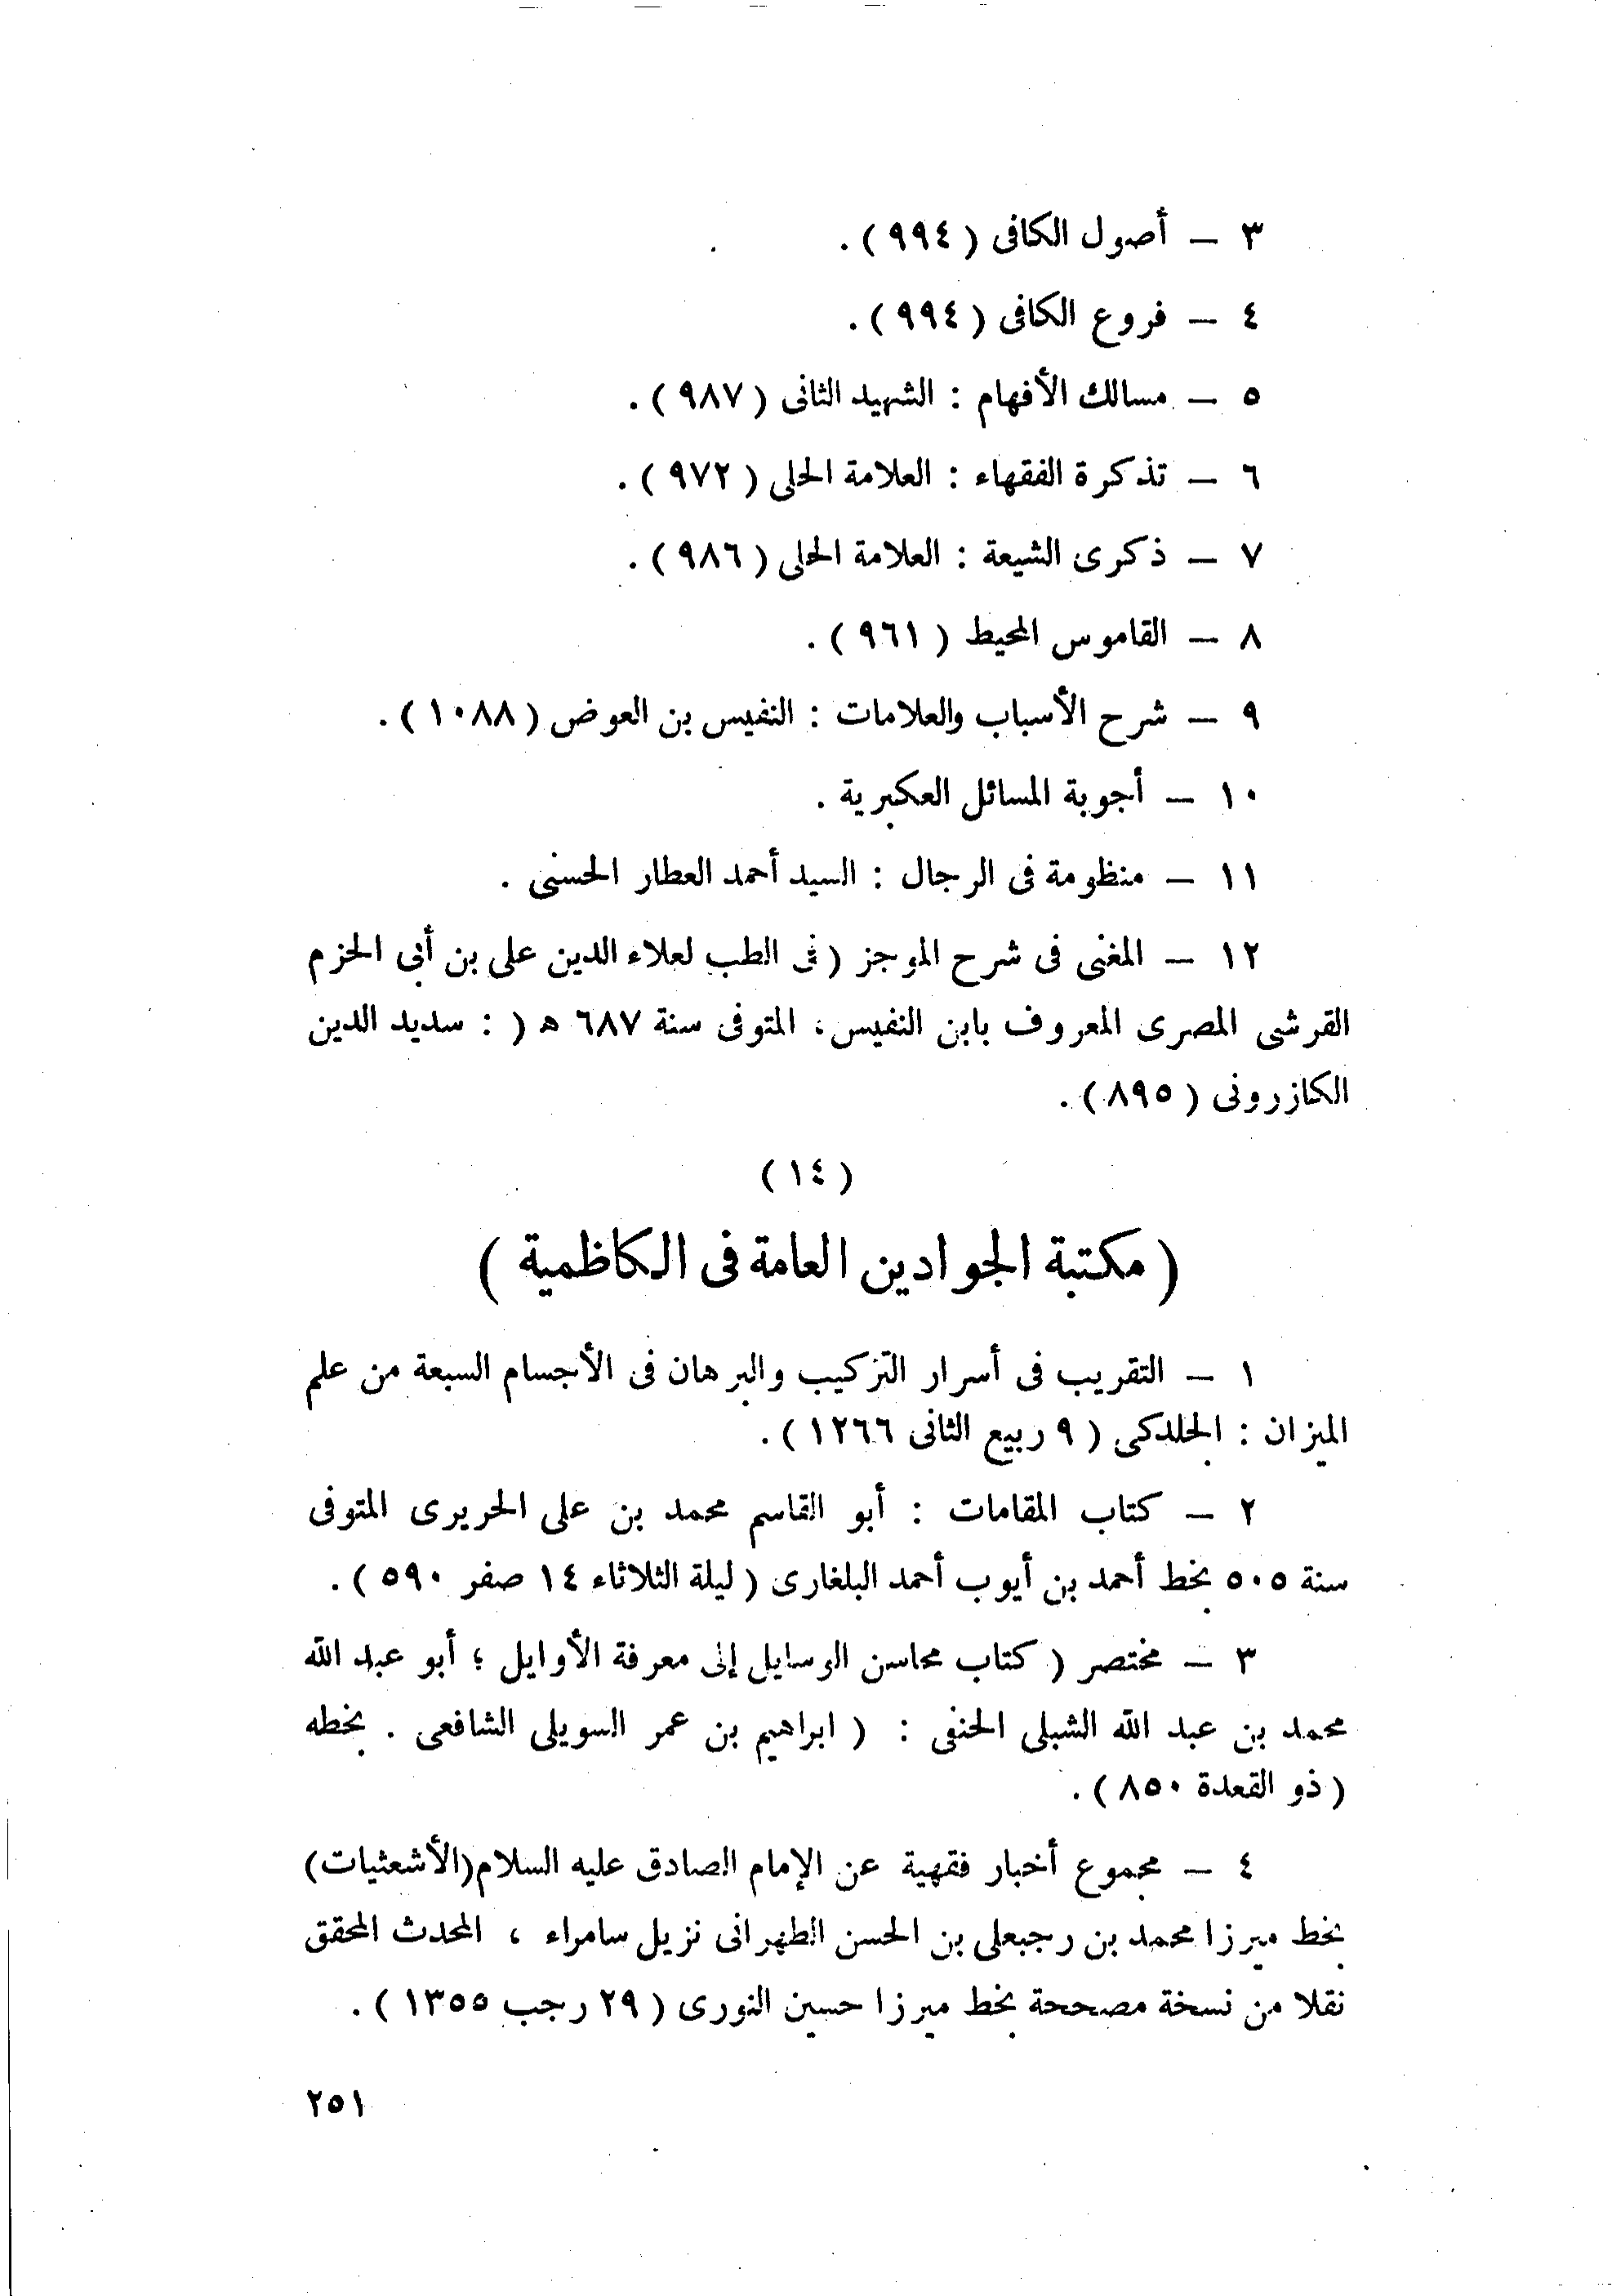 ٣ — أصول الكافى ( ٩٩٤ ) .
٤ — فروع الكافى ( ٩٩٤ ) .
٥ — مسالك الأفهام : الشهيد الثانى ( ٩٨٧ ) .
٦ — تذكرة الفقهاء : العلامة الحلى ( ٩٧٢ ) .
٧ — ذكرى الشيعة : العلامة الحلى ( ٩٨٦ ) .
٨ — القاموس المحيط ( ٩٦١ ) .
٩ — شرح الأسباب والعلامات : النفيس بن العوض ( ١٠٨٨ ) .
١٠ — أجوبة المسائل العكبرية .
١١ — منظومة فى الرجال : السيد أحمد العطار الحسنى .
١٢ — المغنى فى شرح الموجز ( فى الطب لعلاء الدين على بن أبى الحزم
القرشى المصرى المعروف بابن النفيس ، المتوفى سنة ٦٨٧ هـ ( : سديد الدين
الكازرونى ( ٨٩٥ ) .
( ١٤ )
( مكتبة الجوادين العامة فى الكاظمية )
١ — التقريب فى أسرار التركيب والبرهان فى الأجسام السبعة من علم
الميزان : الجلدكى ( ٩ ربيع الثانى ١٢٦٦ ) .
٢ — كتاب المقامات : أبو القاسم محمد بن على الحريرى المتوفى
سنة ٥٠٥ بخط أحمد بن أيوب أحمد البلغارى ( ليلة الثلاثاء ١٤ صفر ٥٩٠ ) .
٣ — مختصر ( كتاب محاسن الوسايل إلى معرفة الأوايل ؛ أبو عبد الله
محمد بن عبد الله الشبلى الحنفى : ( ابراهيم بن عمر السويلى الشافعى . بخطه
( ذو القعدة ٨٥٠ ) .
٤ — مجموع أخبار فقهية عن الإمام الصادق عليه السلام (الأشعثيات)
بخط ميرزا محمد بن رجبعلى بن الحسن الطهرانى نزيل سامراء ، المحدث المحقق
نقلا من نسخة مصححة بخط ميرزا حسين النورى ( ٢٩ رجب ١٣٥٥ ) .
٢٥١